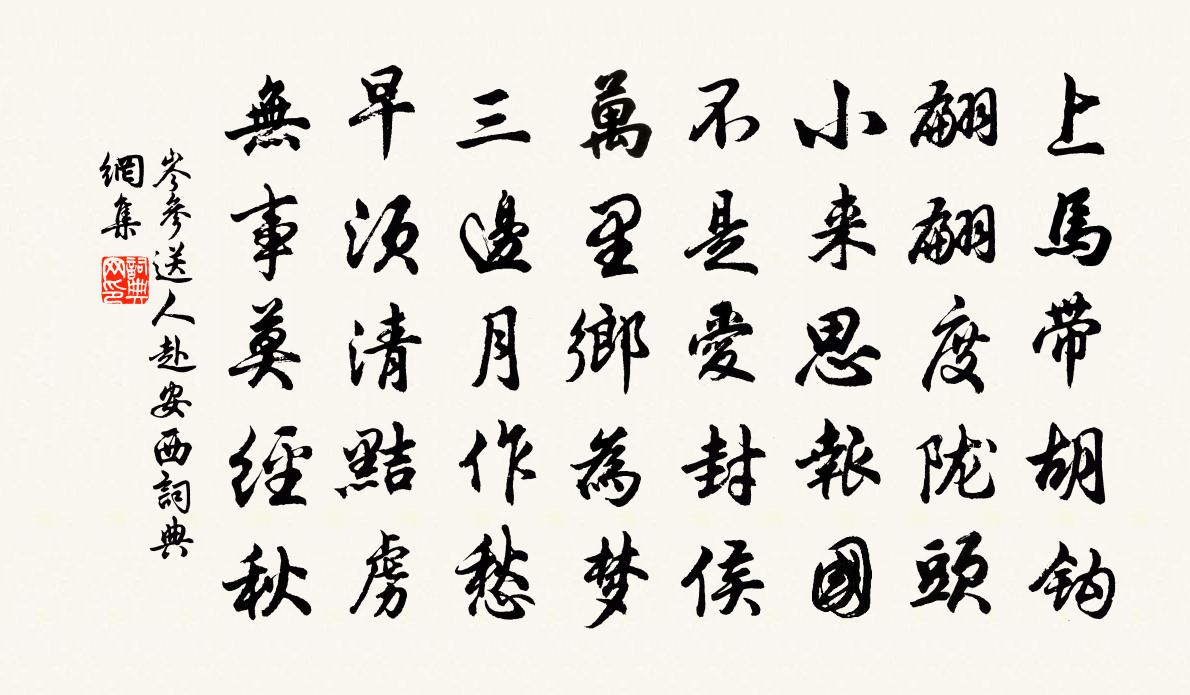 上馬带胡鈎
翩翩度陇頭
小来思報國
不是愛封侯
萬里鄉為梦
三邊月作愁
早须清黠虜
無事莫經秋
岑參送人赴安西詞典
網集
詞典网印